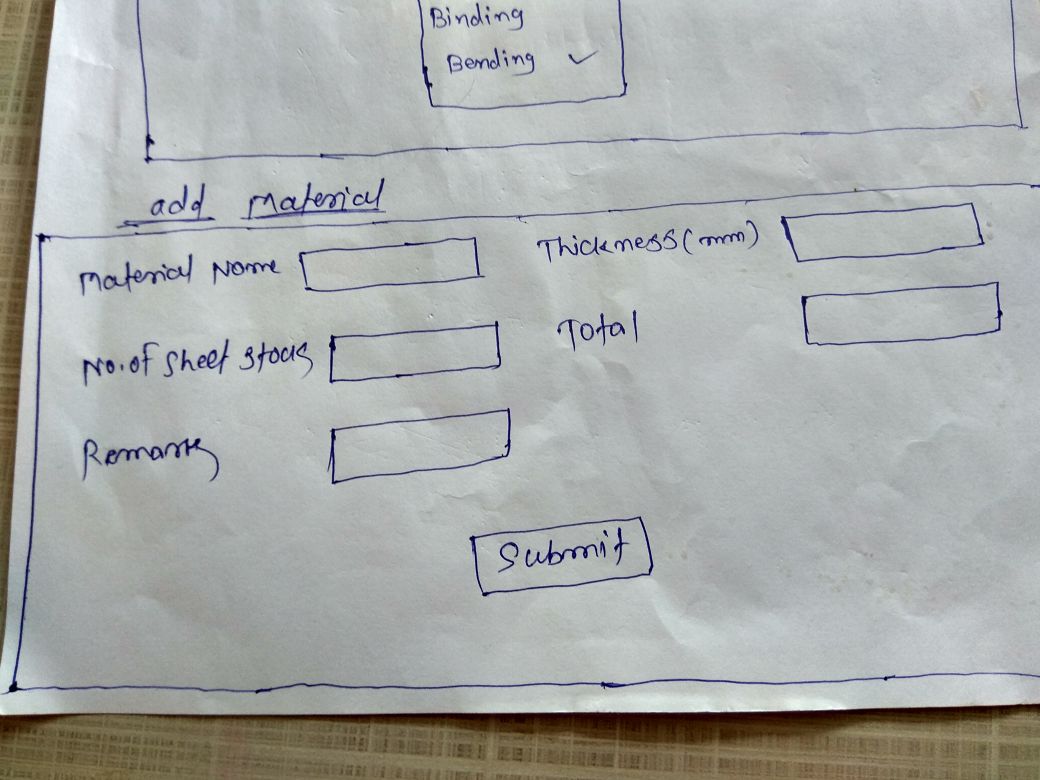 Binding
Bending ✓
add Material
Material Name
Thickness(mm)
No. of Sheet Stock
Total
Remarks
Submit